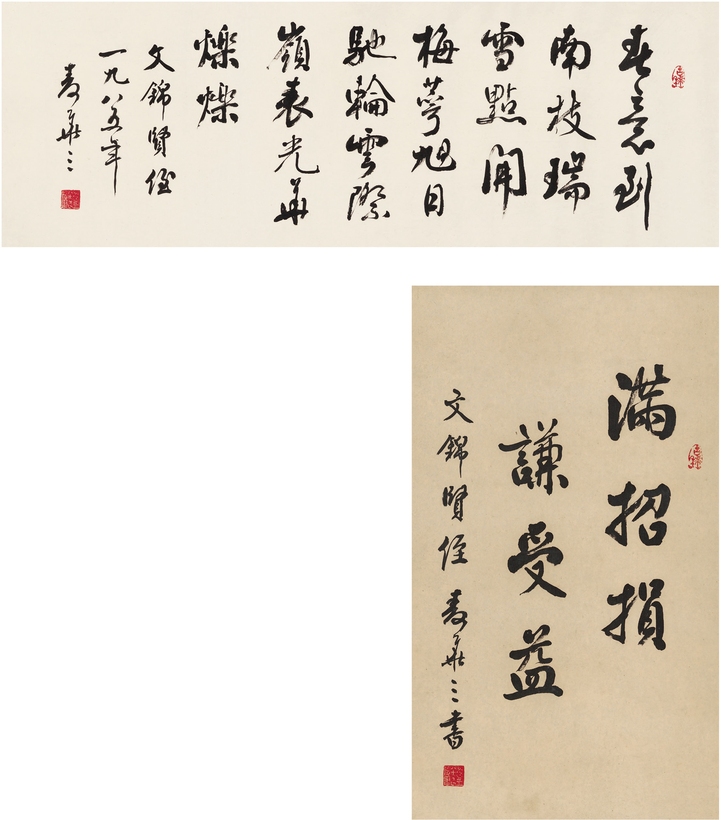 春意到
南枝瑞
雪點開
梅萼旭日
馳輪雲際
嶺表光華
爍爍
文錦賢侄
一九八五年
麥華三
滿招損
謙受益
文錦賢侄 麥華三書